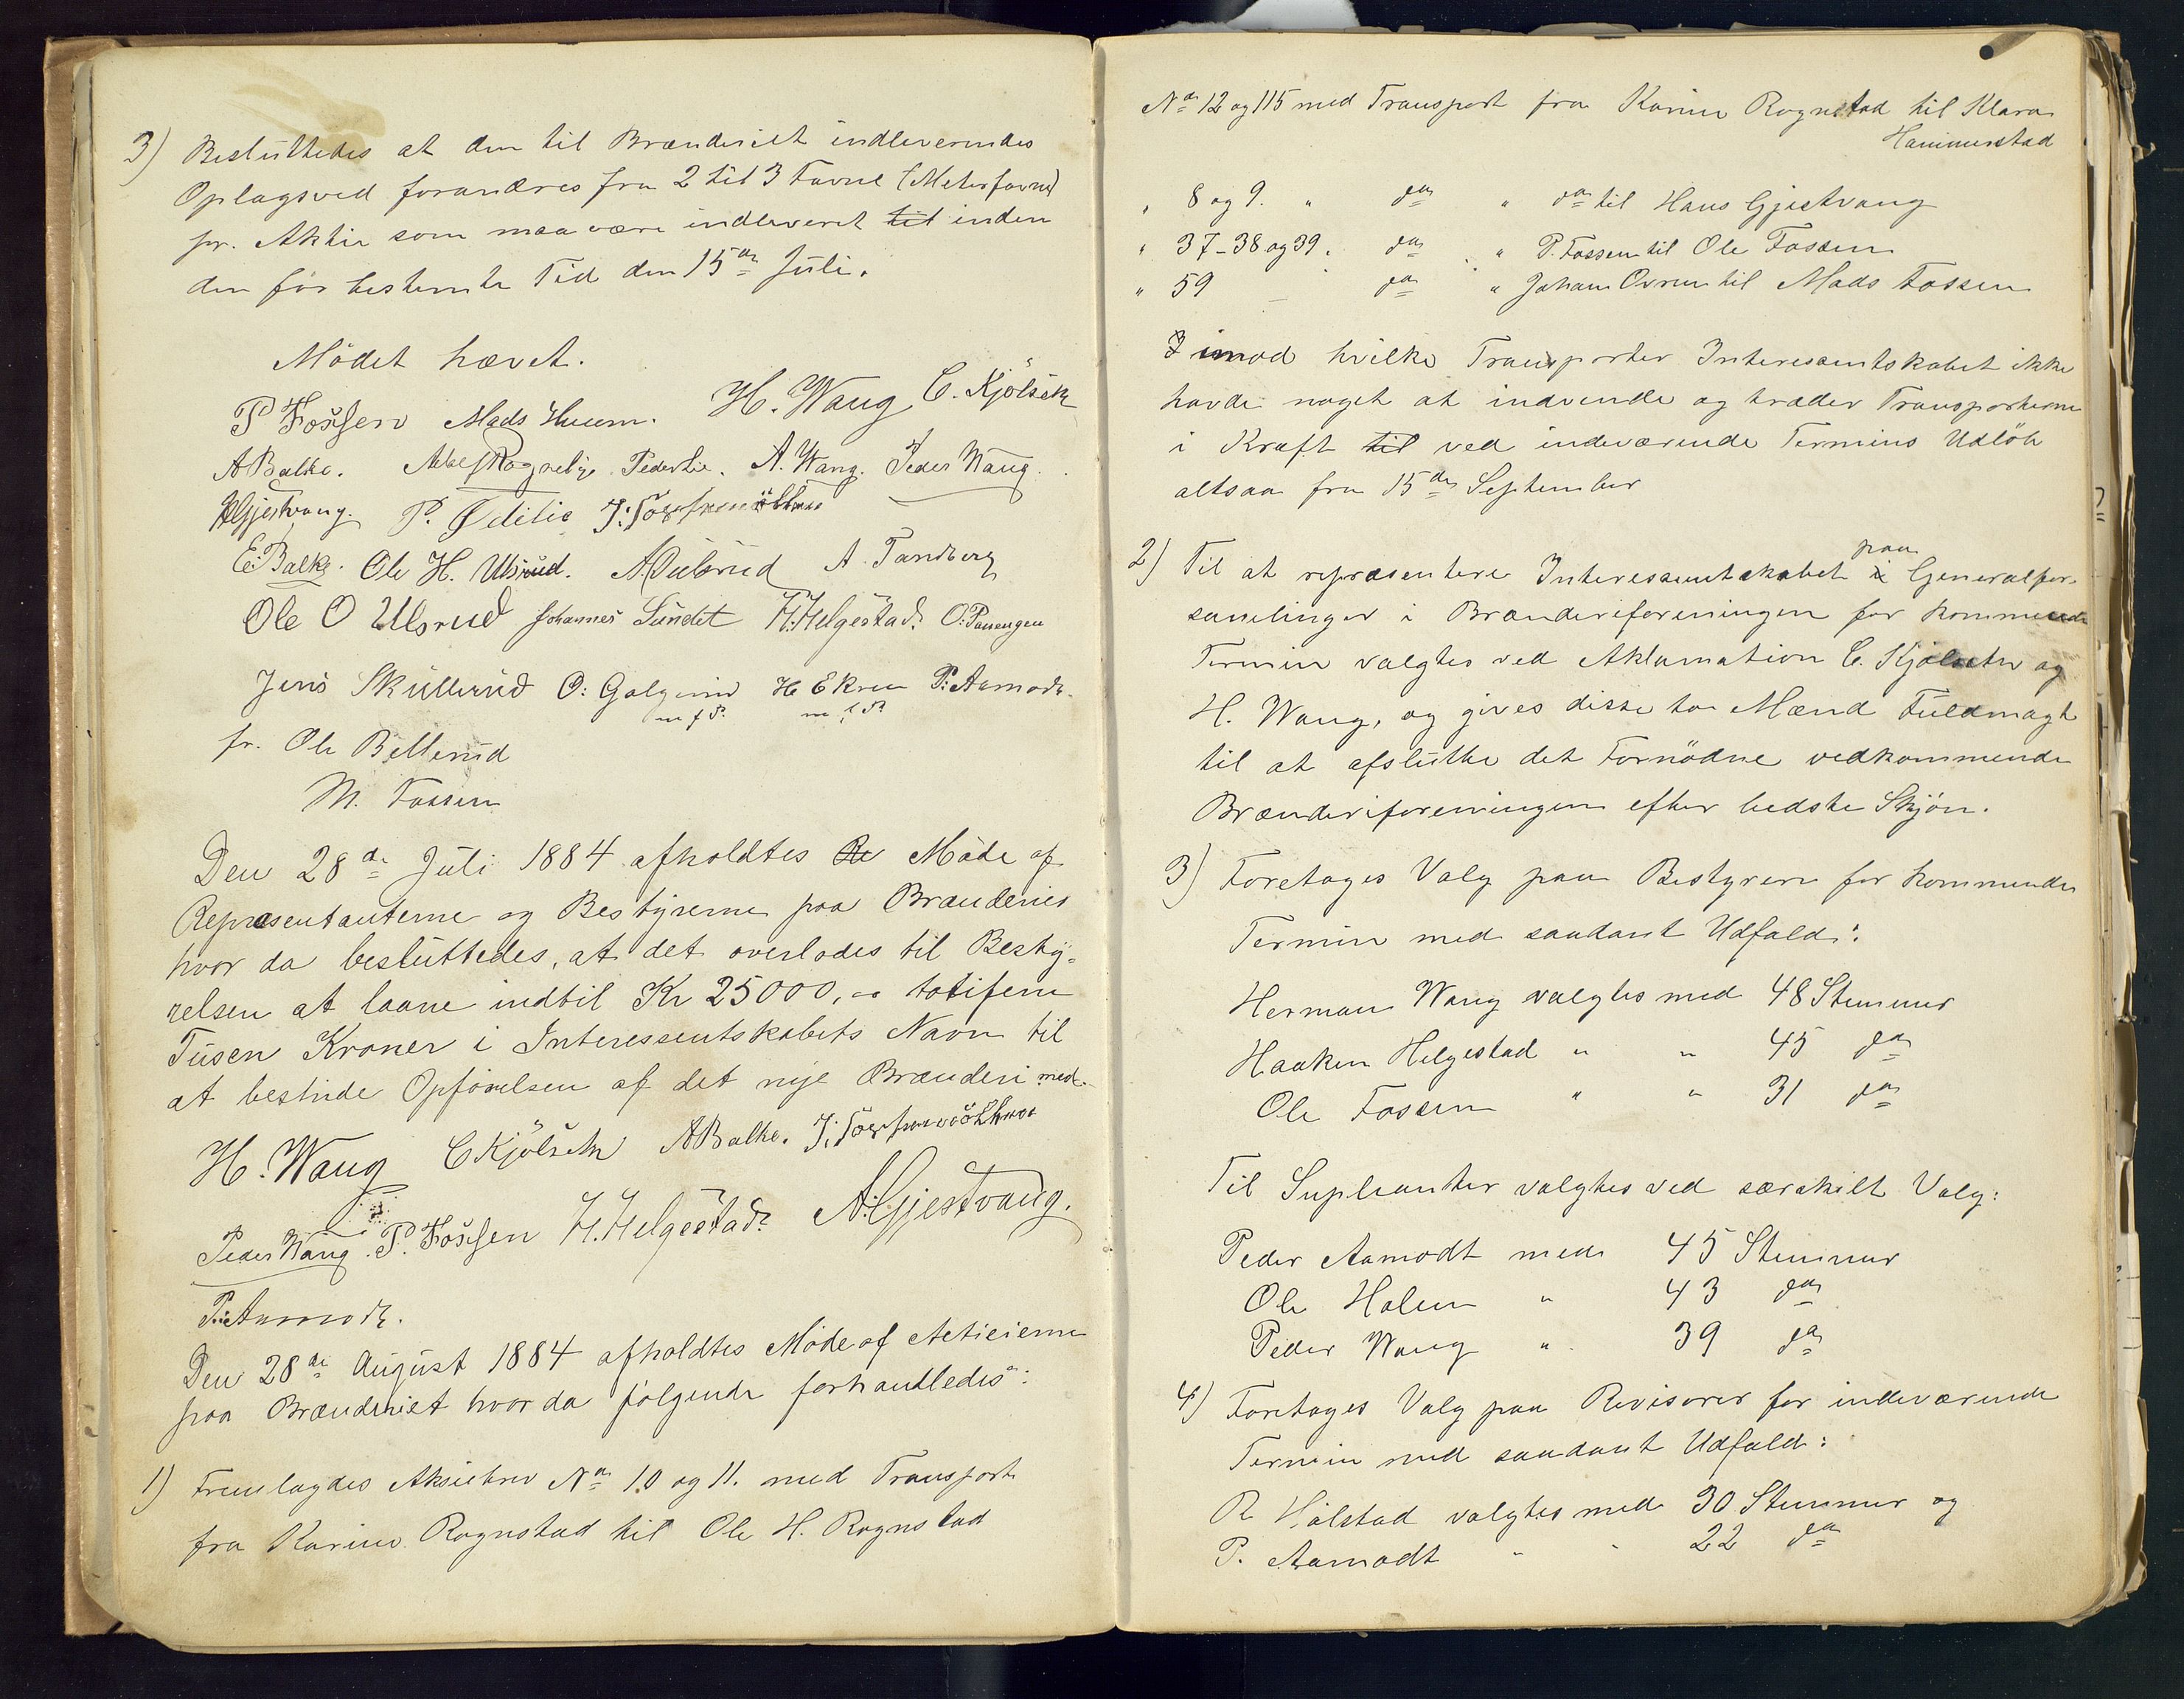 3) Besluttedes at den til Brænderiet indleverendes
Oplagsved forandres fra 2 til 3 Favne (Meterfavne)
pr. Aktie som maa være indleveret til inden
den før bestemte Tid den 15de Juli.
Mödet hævet.
P Fossen Mads Huem. H. Wang C. Kjölseth
A Balke. Peder Lie. A. Wang. Peder Wang.
A Gjestvang. P. Ødelie
E. Balke. Ole H. Ulsrud. A. Tandberg
Ole O Ulsrud Johannes Sundet H. Helgestad. O. Pauengen
Jens Skullerud O: H Ekren P. Aamodt.
m f P. m f P
fr. Ole Bellerud
M. Fossen
Den 28de Juli 1884 afholdtes Re Möde af
Repræsentanterne og Bestÿrerne paa Brænderiet
hvor da besluttedes, at det overlodes til Besty-
relsen at laane indtil Kr 25000,00 totifem
Tusen Kroner i Interessentskabets Navn til
at bestride Opförelsen af det nye Brænderi med.
H. Wang C Kjölseth A Balke.
Peder Wang. P. Fossen H. Helgestad. A. Gjestvang.
P. Aamodt.
Den 28de August 1884 afholdtes Möde af Actieierne
paa Brænderiet hvor da følgende forhandledes:
1) Fremlagdes Aksiebrev No 10 og 11. med Transport
fra Karine Rognstad til Ole H. Rognstad
No 12 og 115 med Transport fra Karine Rognstad til Klara
Hammerstad
" 8 og 9. " do " do til Hans Gjestvang
" 37-38 og 39. do " P. Fossen til Ole Fossen
" 59 do " Johan Ovren til Mads Fossen
I imod hvilke Transporter Interesentskabet ikke
havde noget at indvende og træder Transporterne
i Kraft til ved indeværende Termins Udlöb
altsaa fra 15de September
2) Til at repræsentere Interessentskabet i paa Generalfor-
samlinger i Brænderiforeningen for kommende
Termin valgtes ved Aklamation C. Kjölseth og
H. Wang, og gives disse to Mænd Fuldmagt
til at afslutte det Fornödne vedkommende
Brænderiforeningen efter bedste Skjön.
3) Foretoges Valg paa Bestyrere for kommende
Termin med saadant Udfald:
Herman Wang valgtes med 48 Stemmer
Haaken Helgestad " " 45 do
Ole Fossen " " 31 do
Til Supleanter valgtes ved særskilt Valg:
Peder Aamodt med 45 Stemmer
Ole Holen " 43 do
Peder Wang " 39 do
4) Foretoges Valg paa Revisorer for indeværende
Termin med saadant Udfald:
R Hölstad valgtes med 30 Stemmer og
P. Aamodt " " 22 do